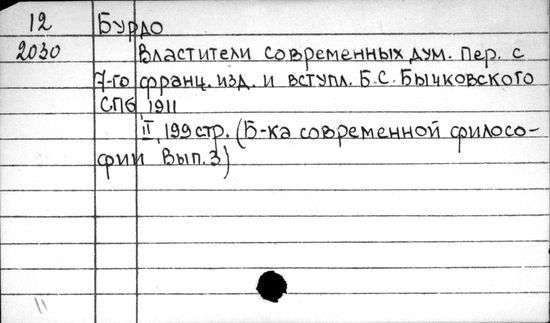 12 Бурдо
2030 Властители современных дум. Пер. с
7-го франц. изд. и вступл. Б.С. Бычковского
СПб, 1911
II, 199 стр. (Б-ка современной филосо-
фии Вып. 3)
11